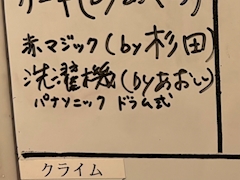 ケーキ(by
赤マジック(by杉田)
洗濯機(byあおい)
パナソニック ドラム式
クライム